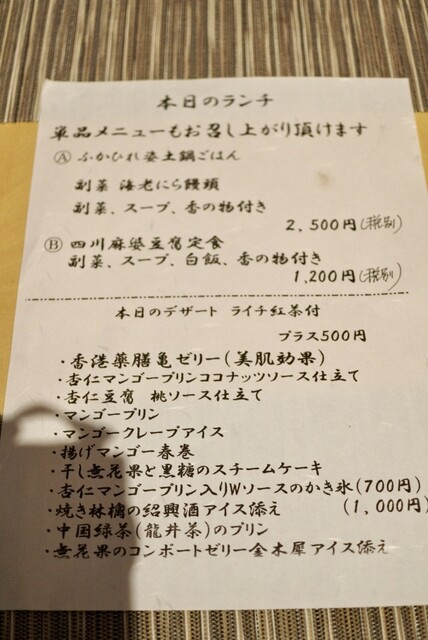 本日のランチ
単品メニューもお召し上がり頂けます
Ⓐ ふかひれ姿土鍋ごはん
副菜 海老にら饅頭
副菜、スープ、香の物付き
2,500円(税別)
Ⓑ 四川麻婆豆腐定食
副菜、スープ、白飯、香の物付き
1,200円(税別)
本日のデザート ライチ紅茶付
プラス500円
・香港薬膳亀ゼリー(美肌効果)
・杏仁マンゴープリンココナッツソース仕立て
・杏仁豆腐 桃ソース仕立て
・マンゴープリン
・マンゴークレープアイス
・揚げマンゴー春巻
・干し無花果と黒糖のスチームケーキ
・杏仁マンゴープリン入りWソースのかき氷(700円)
・焼き林檎の紹興酒アイス添え (1,000円)
・中国緑茶(龍井茶)のプリン
・無花果のコンポートゼリー金木犀アイス添え